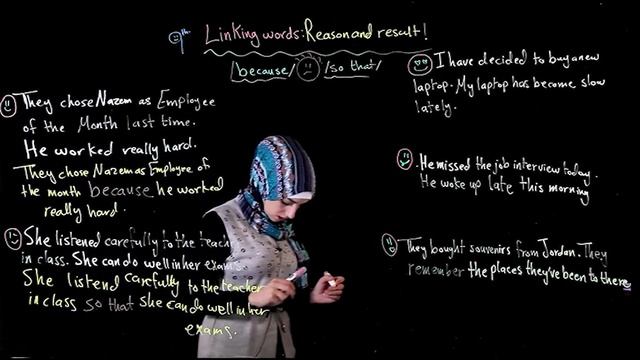 9th
Linking words: Reason and result!
/because/ /so that/
They chose Nazem as Employee
of the Month last time.
He worked really hard.
They chose Nazem as Employee of
the month because he worked
really hard.
She listened carefully to the teach
in class. She can do well in her exams.
She listend carefully to the teacher
in class so that she can do well in her
exams.
I have decided to buy a new
laptop. My laptop has become slow
lately.
He missed the job interview today.
He woke up late this morning
They bought souvenirs from Jordan. They
remember the places they've been to there